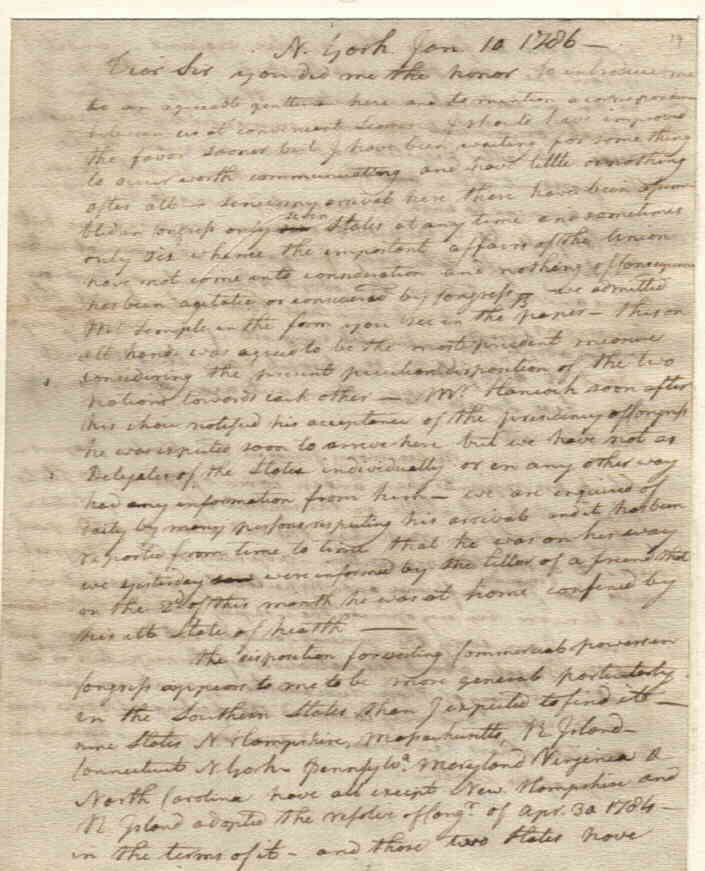 19
N. York Jan 10 1786 —
Dear Sir you did me the honor to introduce me
to an agreeable gentleman here and to mention a correspondence
between us at convenient seasons. I should have improved
the favor sooner but I have been waiting for some thing
to occur worth communicating and have little or nothing
after all — since my arrival here there have been assem
bled in Congress only seven States at any time and sometimes
only six whence the important affairs of the Union
have not come into consideration and nothing of consequence
has been agitated or considered by Congress — we admitted
Mr Temple in the form you see in the papers — this on
all hands was agreed to be the most prudent measure
considering the present peculiar disposition of the two
Nations towards each other — Mr Hancock soon after
his choice notified his acceptance of the presidency of Congress
he was expected soon to arrive here but we have not as
Delegates of the State individually or in any other way
had any information from him — we are enquired of
daily by many persons respecting his arrival and it has been
reported from time to time that he was on his way
we yesterday were informed by the letter of a friend that
on the 2d of this month he was at home confined by
his ill State of health —
The disposition for vesting Commercial powers in
Congress appears to me to be more general particularly
in the Southern States than I expected to find it —
nine States N Hampshire, Massachusetts, R Island
Connecticut N York Pennsylva. Maryland Virginia &
North Carolina have all except New Hampshire and
R Island adopted the resolve of Congs. of Apr. 30 1784 —
in the terms of it — and those two States have